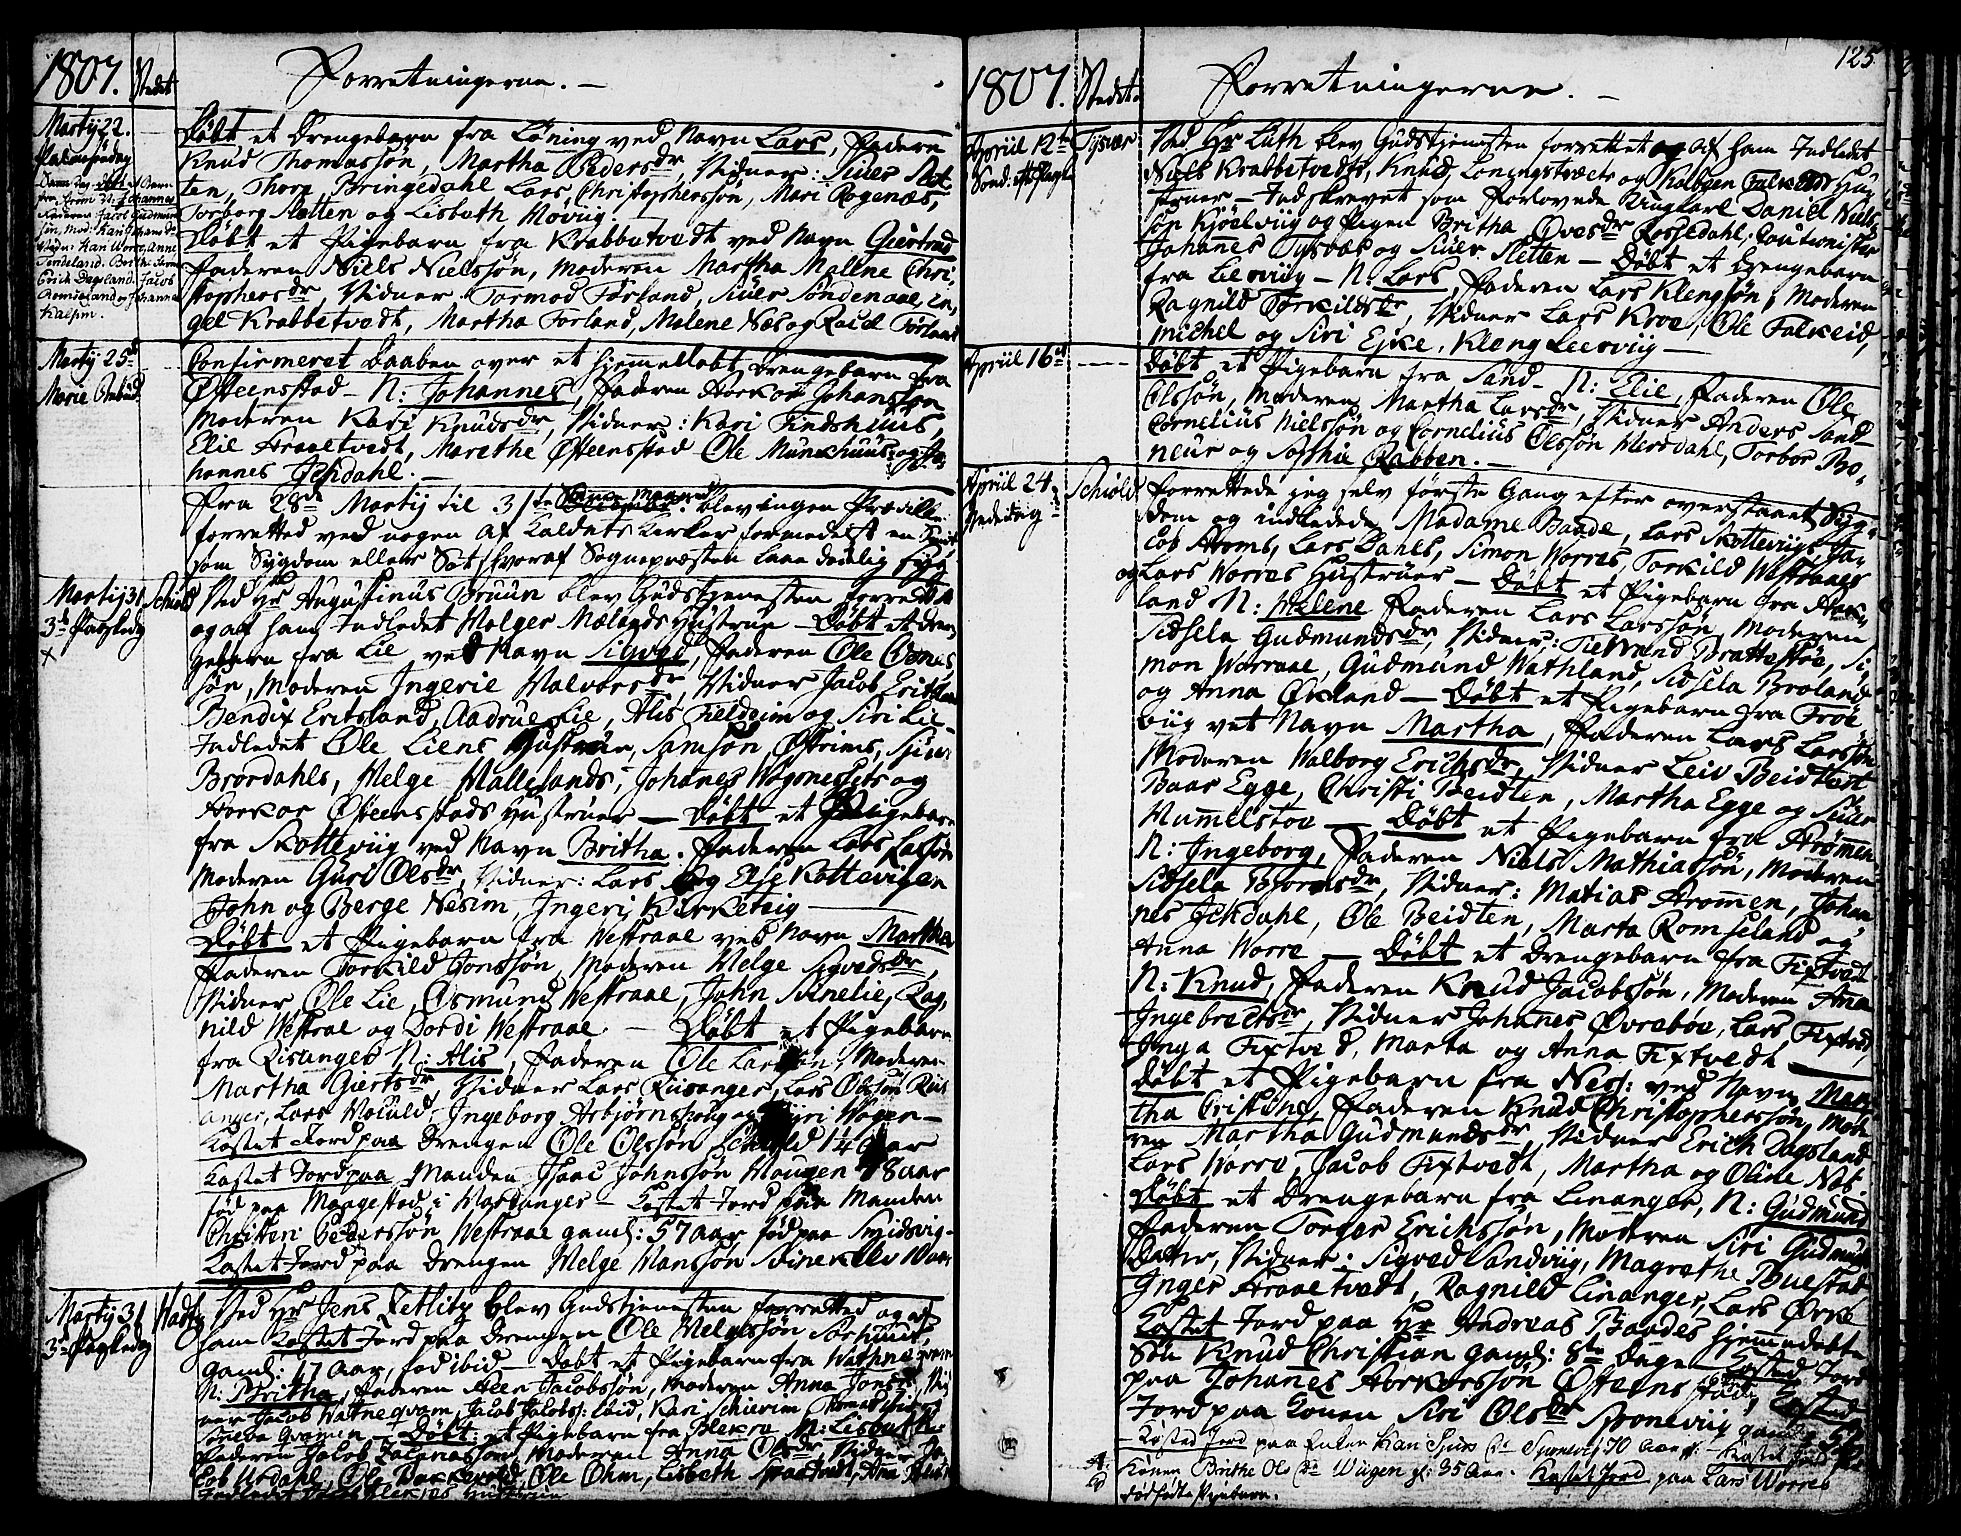 1807. Stedet Forretningerne. —
Martij 22.
Palmesøndag
Døbt et Drengebarn fra Løning ved Navn Lars, Faderen
Knud Thomassøn, Martha Pedersdr, Vidner: Siver Slet-
ten, Thore Bringedahl Lars Christopherssøn, Mari Rogenæs,
Torborg Sletten og Lisbeth Høvig.
Døbt et Pigebarn fra Krabbetvedt ved Navn Giertrud
Faderen Niels Nielssøn, Moderen Martha Malene Chri-
stophersdr, Vidner Tormod Førland, Siver Søndenaae, In-
gel Krabbetvedt, Martha Førland, Malene Næs og Raid Førland
Martij 25d
Marie Bebud.
Confirmeret Daaben over et hjemmedøbt Drengebarn fra
Østeenstad — N: Johannes, Faderen Horkor Johanssøn
Moderen Kari Knudsdr, Vidner: Kari Findshuus,
Elie Araaetvedt, Marethe Østeenstad Ole Munkhuus og Jo-
hannes Jekdahl. —
Fra 28de Martij til 31te blev ingen Prædiken
forretted ved nogen af Kaldets Kirker formedelst en
som Sygdom eller Sot hvoraf Sognepræsten laae dødelig syg
Martij 31 Schiold
3die Paaskedag
Ved Hr Augustinus Bruun blev Gudstjenesten forrettet
og af ham Indledet Holger Mælands Hustrue — Døbt et Dren-
gebarn fra Lie ved Navn Sigvad, Faderen Ole Oens
søn, Moderen Ingerie Halvorsdr, Vidner Jacob Eritsland
Bendix Eritsland, Aadrue Lie, Alis Fieldeim og Siri Lie
Indledet Ole Liens Hustrue, Samson, Østeims,
Brørdahls, Helge Mallelands, Johanes Wognessets og
Horkor Østeenstads Hustruer — Døbt et Pigebarn
fra Skottevig ved Navn Britha. Faderen Lars Larssøn
Moderen Guri Olsdr, Vidner: Lars og Else Kottevigen
John og Berge Nesim, Ingeri Kirketeig —
Døbt et Pigebarn fra Westraae ved Navn Martha
Faderen Torkild Jonssøn, Moderen Helge Sigvedsdr,
Vidner, Ole Lie, Osmund Westraae, John Svinelie, Rag-
nild Westraae og Dordi Westraae. — Døbt et Pigebarn
fra Risanger N: Alis, Faderen Ole Larssøn, Moderen
Martha Giertsdr, Vidner Lars Riisanger, Lars Olssøn Riis
anger, Lars Ingeborg Arbjørns og Siri Hogen —
Kastet Jord paa Drengen Ole Olssøn Schiold 14 Aar
Kastet Jord paa Manden Isaac Johnssøn Haugen 78 Aar
fød paa Maagestad i Hardanger — Kastet Jord paa Manden
Christen Pederssøn Westraae gaml: 57 Aar fød paa Smidsvig —
Kastet Jord paa Drengen Helge Hanssøn
Martij 31
3die Paaskedag
Ved Hr Jens Zetlitz blev Gudstjenesten forretted og af
ham Kastet Jord paa Drengen Ole Helgessøn
gaml: 17 Aar, fød ibid — Døbt et Pigebarn fra Watne
N: Britha, Faderen Steen Jacobssøn, Moderen Anna Jons
Jacob Watneqvam, Jacob Jacobss: ibid, Kari Schieeim
Qvamen — Døbt: et Pigebarn fra N: Lisbeth
Faderen Jacob Zacariassøn, Moderen Anna Olsdr, Vidner
cob Utdahl, Ole Ole Ohm, Lisbeth
1807. Stedet. Forretningerne. — 125
Apriil 12te Tysvær
Ved Hr Luth blev Gudstjenesten forrettet og af ham Indledet
Niels Krabbetvedts, Knud Loningstræets og Halgen Falkeids Hu-
struer — Indskrevet som forlovede Ungkarl Daniel Niels
søn Kjelviig og Pigen Britha Ovesdr Rossedahl; Cautionister
Johanes Tysvær og Siver Sletten — Døbt et Drengebarn
fra Liervig — N: Lars, Faderen Lars Klengsøn, Moderen
Ragnild Torkildsdr, Vidner Lars Kroe, Ole Falkeid,
Michel og Siri Ejke, Kleng Leerviig —
Apriil 16d
Døbt et Pigebarn fra Sand — N: Elie, Faderen Ole
Olssøn, Moderen Martha Larsdr, Vidner Anders Sand
Cornelius Nielssøn og Cornelius Olssøn Hersdahl, Torbor Bo-
neur og Sophie Rabben. —
Apriil 24 Schiold
Forrettede jeg selv første Gang efter overstaaet Syg-
dom og indledede Madame Baade, Lars Skotteviigs, Ja-
cob Aroms, Lars Danels, Simon Worres, Torkild Westraaes
og Lars Worres Hustruer — Døbt et Pigebarn fra
land N: Melene Faderen Lars Larssøn, Moderen
Sidsela Gudmundsdr, Vidner: Tiervand Brattestøe, Si-
mon Worraae, Gudmund Wathland, Sidsela Broland
og Anna Økland — Døbt et Pigebarn fra Frøe
viig vet Navn Martha, Faderen Lars Larssøn
Moderen Walborg Erichsdr, Vidner Leiv Beidtert
Baar Egge, Christi Beidten, Martha Egge og Siver
Hummelstov — Døbt et Pigebarn fra Arømen
N: Ingeborg, Faderen Niels Mathiassøn, Moderen
Sidsela Biornsdr, Vidner: Matias Arommen, Johan
nes Jekdahl, Ole Beidten, Marta Romseland og
Anna Worre — Døbt et Drengebarn fra Fixtvedt
N: Knud, Faderen Knud Jacobssøn, Moderen Anna
Ingebretsdr, Vidner Johanes Øvrebøe, Lars Fixtved,
Inga Fixtved, Marta og Anna Fixtvedt —
Døbt et Pigebarn fra Ness: ved Navn Mar-
tha Cristine, Faderen Knud Christopherssøn, Mode-
ren Martha Gudmundsdr, Vidner Erich Dagsland
Lars Worre, Jacob Fixtvedt, Martha og Oline Nes.
Døbt et Drengebarn fra Linanger, N: Gudmund
Faderen Torger Erichssøn, Moderen Siri Gudmunds
Datter, Vidner: Sigved Sandviig, Magrethe Buestad
Inger Araaetvedt, Ragnild Linanger, Lars Ørke
Kastet Jord paa Hr Andreas Baades hjemmedøbte
Søn Knud Christian gaml: 8te Dage — Kasted Jord
paa Johanes Horkorssøn Østeenstad, Kasted
Jord paa Konen Siri Olsdr Sponeviig gaml:
— Kasted Jord paa Enken Kari 70 Aar gl: — Kastet Jord
Konen Brithe Olsdr Wiigen gl: 35 Aar. Kastet Jord paa Lars Worres
dødfødte Pigebarn.